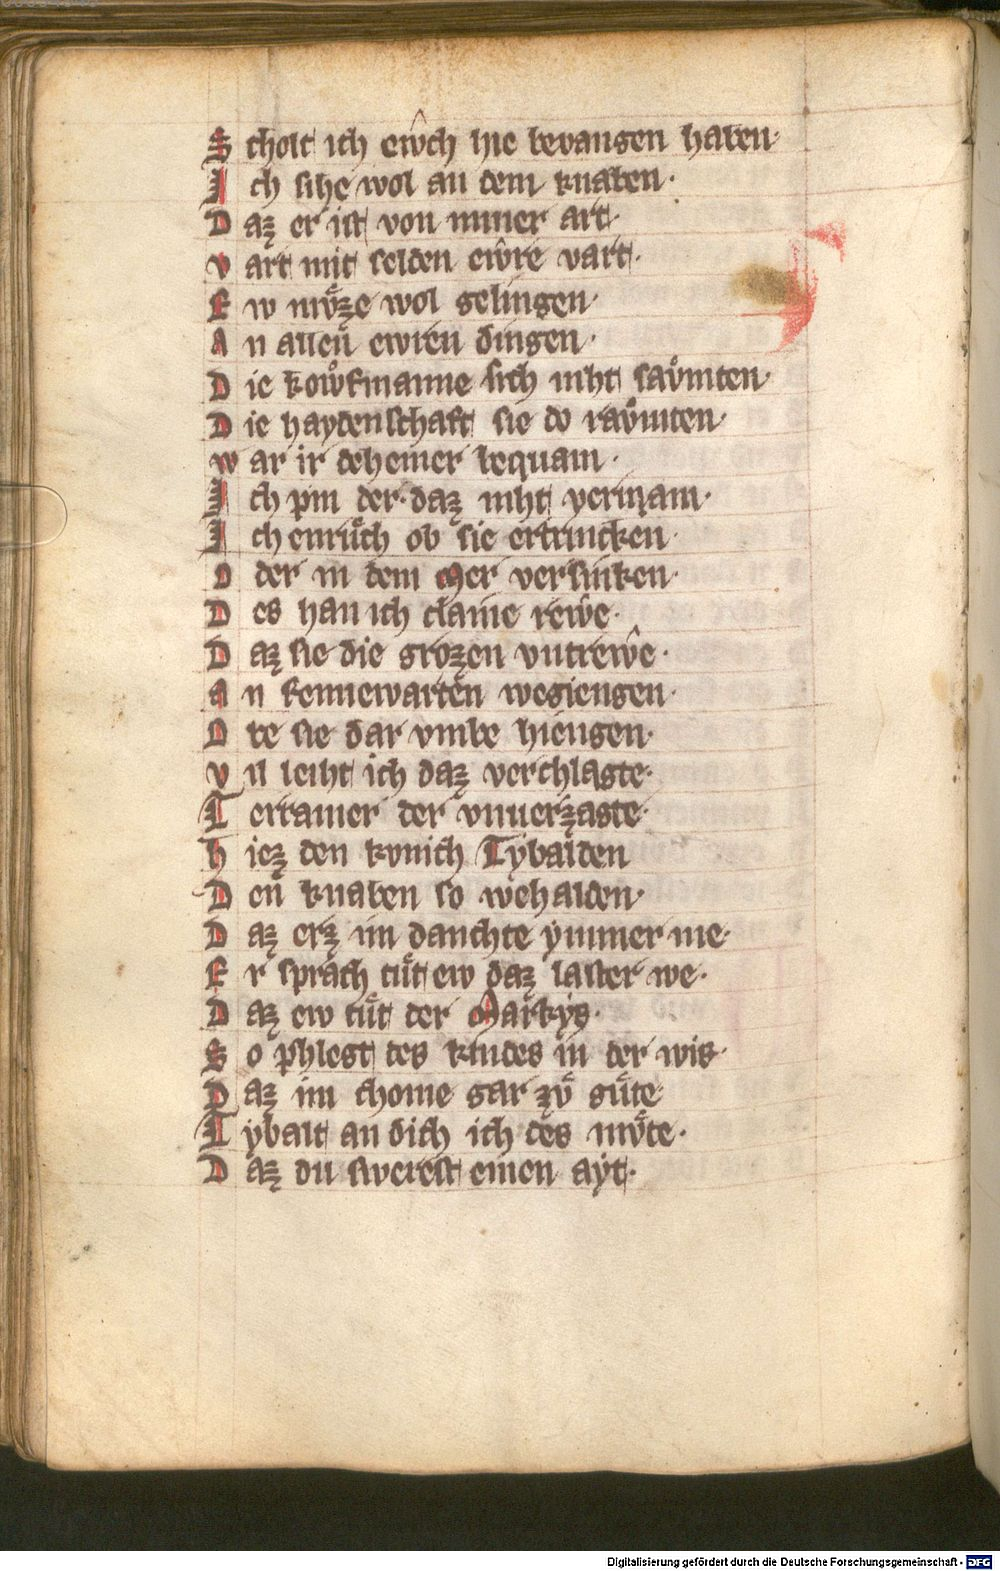 S cholt ich ewch hie bevangen haben·
I ch sihe wol an dem knaben·
D az er ist von miner art·
v art mit selden ewre vart·
E w mv̊ze wol gelingen·
A n allen ewren dingen·
D ie kowfmanne sich niht savmten·
D ie haydenschaft sie do ravmten·
w ar ir deheiner bequam·
I ch pin der daz niht vernam·
I ch enruͦch ob sie ertrincken·
O der in dem Mer versinken·
D es han ich claine rewe·
D az sie die grozen vntrewe·
a n kennewarten wegiengen·
O be sie dar vmbe hiengen·
v il leiht ich daz verchlagte·
T erramer der vnuerzagte·
h iez den kvnich Tybalden
D en knaben so wehalden·
D az erz im danchte ymmer me·
E r sprach tuͦt ew daz laster we·
D az ew tuͦt der Markys·
S o phlegt des kindes in der wis·
D az im chome gar zv̊ guͦte·
T ybalt an dich ich des mv̊te·
D az du swerest einen ayt·
Digitalisierung gefördert durch die Deutsche Forschungsgemeinschaft - DFG